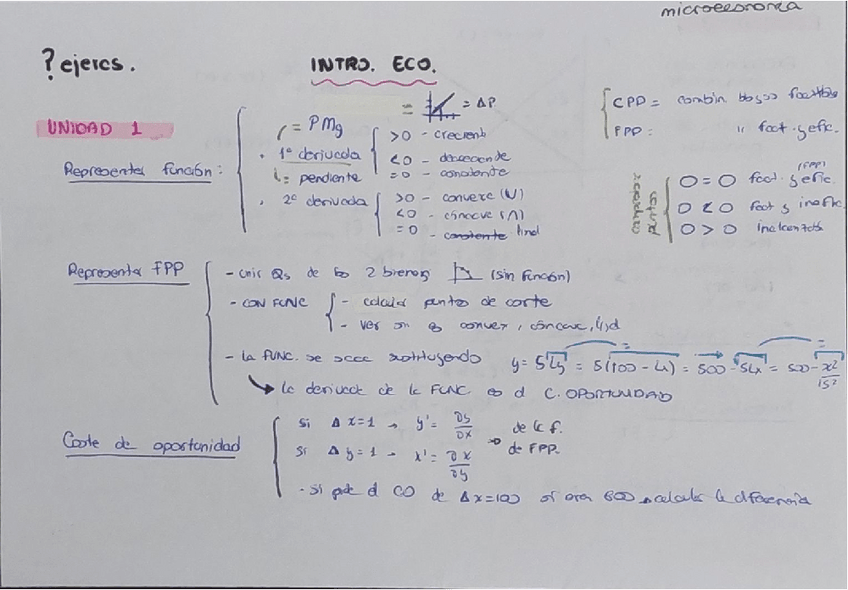 microeconomía
? ejercs.
INTRO. ECO.
UNIDAD 1
Representar función:
= ΔP
= PMg
· 1º derivada
= pendiente
>0 - creciente
<0 - decreciente
=0 - constante
· 2º derivada
>0 - convexe (U)
<0 - cóncave (∩)
=0 - constante lineal
CPD = combin bos factibles
FPP: " fact. y efic.
(FPP)
0 = 0 fact. y efic.
0 < 0 fact y inefic.
0 > 0 inalcanzable
Representar FPP
- unir Qs de los 2 bienes (sin función)
- CON FUNC
- calcular puntos de corte
- ver si es convex, cóncave,
- la FUNC. se saca sustituyendo y = 5Ly = 5(100 - Lx) = 500 - 5Lx = 500 - x²/15²
la derivada de la FUNC es el C. OPORTUNIDAD
Coste de oportunidad
Si Δx=1 → y' = ∂y/∂x
Si Δy=1 → x' = ∂x/∂y
de la f.
de FPP.
- Si pide el CO de Δx=100 si eran 600 → calcular la diferencia